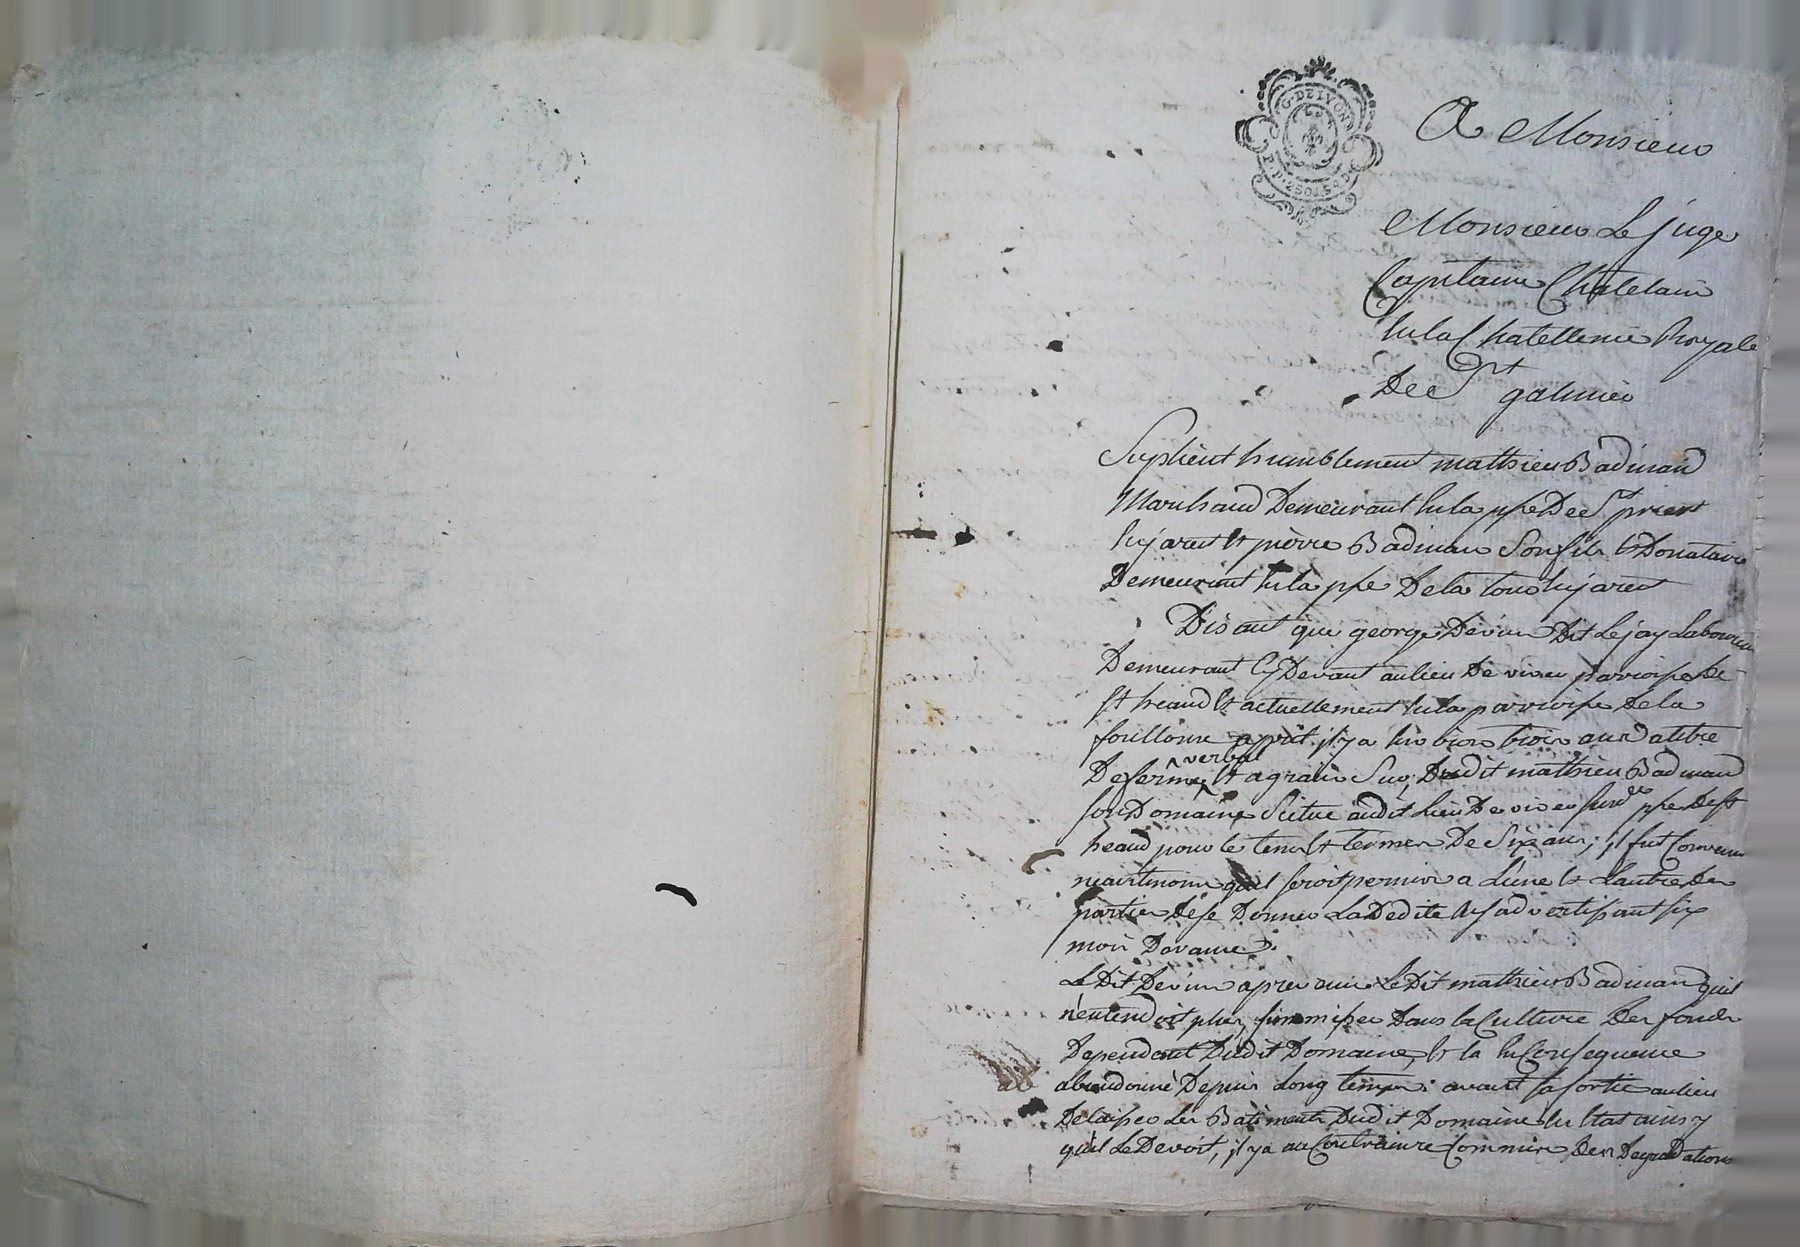 G. DE LYON
P. P. 2 SOLS 4 D
A Monsieur
Monsieur Le juge
Capitaine Chatelain
En la Chatellenie Royale
De St galmier
Suplient humblement mathieu Badinand
Marchand Demeurant En la ppe De St priest
En jarest Et pierre Badinand Son fils Et Donataire
Demeurant En la ppe De la tour En jarest
Disant que george Devun Dit Le jay Laboureur
Demeurant Cy Devant au lieu De parroisse De
St heand Et actuellement En la parroisse De la
fouillouse il y a Environ trois ans a titre
De ferme verbal Et a grain Sur Dudit mathieu Badinand
Son Domaine Scitué audit Lieu De susde ppe De St
heand pour le tems Et termes De Six ans; il fut Convenu
neantmoins qu'il seroit permis a L'une Et L'autre Des
parties De se Donner La Dedite En s'advertissant six
mois D'avance.
Le Dit Devun Le Dit mathieu Badinand quil
n'entendoit plus s'immisser Dans la Culture Des fonds
Dependant Dudit Domaine, Et En Consequence
ab abandonné Depuis Long temps avant sa sortie au lieu
De laisser Les Batiments Dudit Domaine En Etat ainsy
qu'il Le Devoit, il y a au Contraire Commis Des Degradations